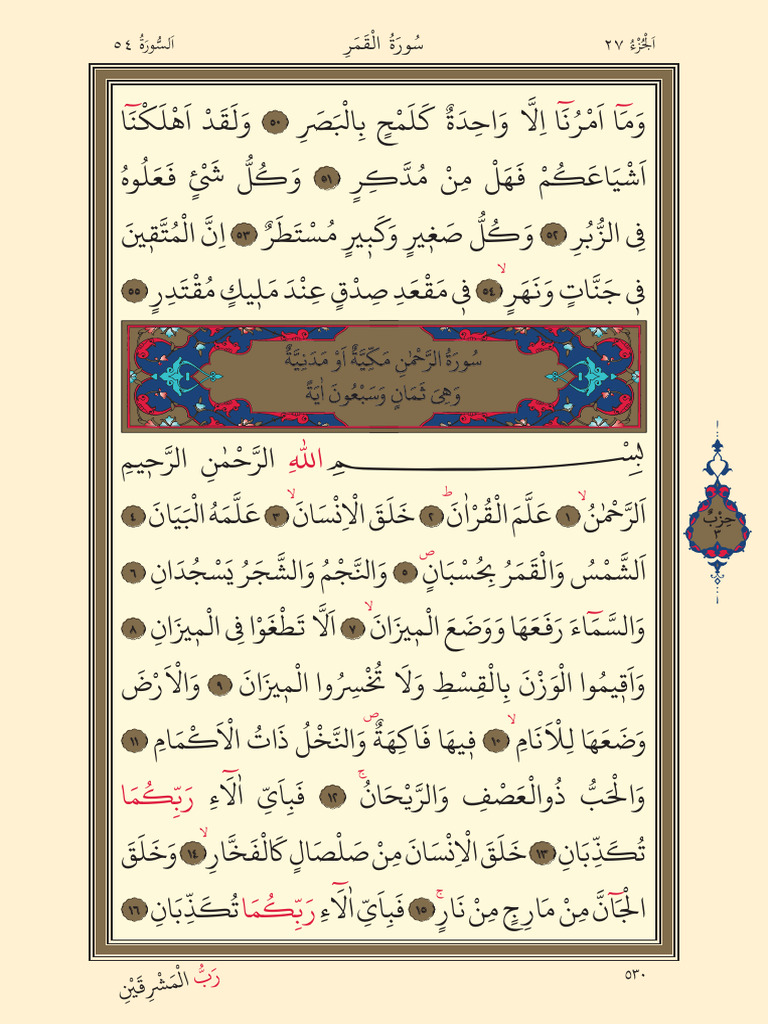 اَلْجُزْءُ ٢٧ سُورَةُ الْقَمَرِ اَلسُّورَةُ ٥٤
وَمَٓا اَمْرُنَٓا اِلَّا وَاحِدَةٌ كَلَمْحٍ بِالْبَصَرِ ٥٠ وَلَقَدْ اَهْلَكْنَٓا
اَشْيَاعَكُمْ فَهَلْ مِنْ مُدَّكِرٍ ٥١ وَكُلُّ شَيْءٍ فَعَلُوهُ
فِى الزُّبُرِ ٥٢ وَكُلُّ صَغ۪يرٍ وَكَب۪يرٍ مُسْتَطَرٌ ٥٣ اِنَّ الْمُتَّق۪ينَ
ف۪ى جَنَّاتٍ وَنَهَرٍۙ ٥٤ ف۪ى مَقْعَدِ صِدْقٍ عِنْدَ مَل۪يكٍ مُقْتَدِرٍ ٥٥
سُورَةُ الرَّحْمٰنِ مَكِّيَّةٌ اَوْ مَدَنِيَّةٌ
وَهِىَ ثَمَانٍ وَسَبْعُونَ اٰيَةً
بِسْمِ اللّٰهِ الرَّحْمٰنِ الرَّح۪يمِ
اَلرَّحْمٰنُۙ ١ عَلَّمَ الْقُرْاٰنَۜ ٢ خَلَقَ الْاِنْسَانَۙ ٣ عَلَّمَهُ الْبَيَانَ ٤
اَلشَّمْسُ وَالْقَمَرُ بِحُسْبَانٍۖ ٥ وَالنَّجْمُ وَالشَّجَرُ يَسْجُدَانِ ٦
وَالسَّمَٓاءَ رَفَعَهَا وَوَضَعَ الْم۪يزَانَۙ ٧ اَلَّا تَطْغَوْا فِى الْم۪يزَانِ ٨
وَاَق۪يمُوا الْوَزْنَ بِالْقِسْطِ وَلَا تُخْسِرُوا الْم۪يزَانَ ٩ وَالْاَرْضَ
وَضَعَهَا لِلْاَنَامِۙ ١٠ ف۪يهَا فَاكِهَةٌۖ وَالنَّخْلُ ذَاتُ الْاَكْمَامِ ١١
وَالْحَبُّ ذُوالْعَصْفِ وَالرَّيْحَانُۚ ١٢ فَبِاَىِّ اٰلَٓاءِ رَبِّكُمَا
تُكَذِّبَانِ ١٣ خَلَقَ الْاِنْسَانَ مِنْ صَلْصَالٍ كَالْفَخَّارِۙ ١٤ وَخَلَقَ
الْجَٓانَّ مِنْ مَارِجٍ مِنْ نَارٍۚ ١٥ فَبِاَىِّ اٰلَٓاءِ رَبِّكُمَا تُكَذِّبَانِ ١٦
حِزْبٌ
٣
٥٣٠
رَبُّ الْمَشْرِقَيْنِ